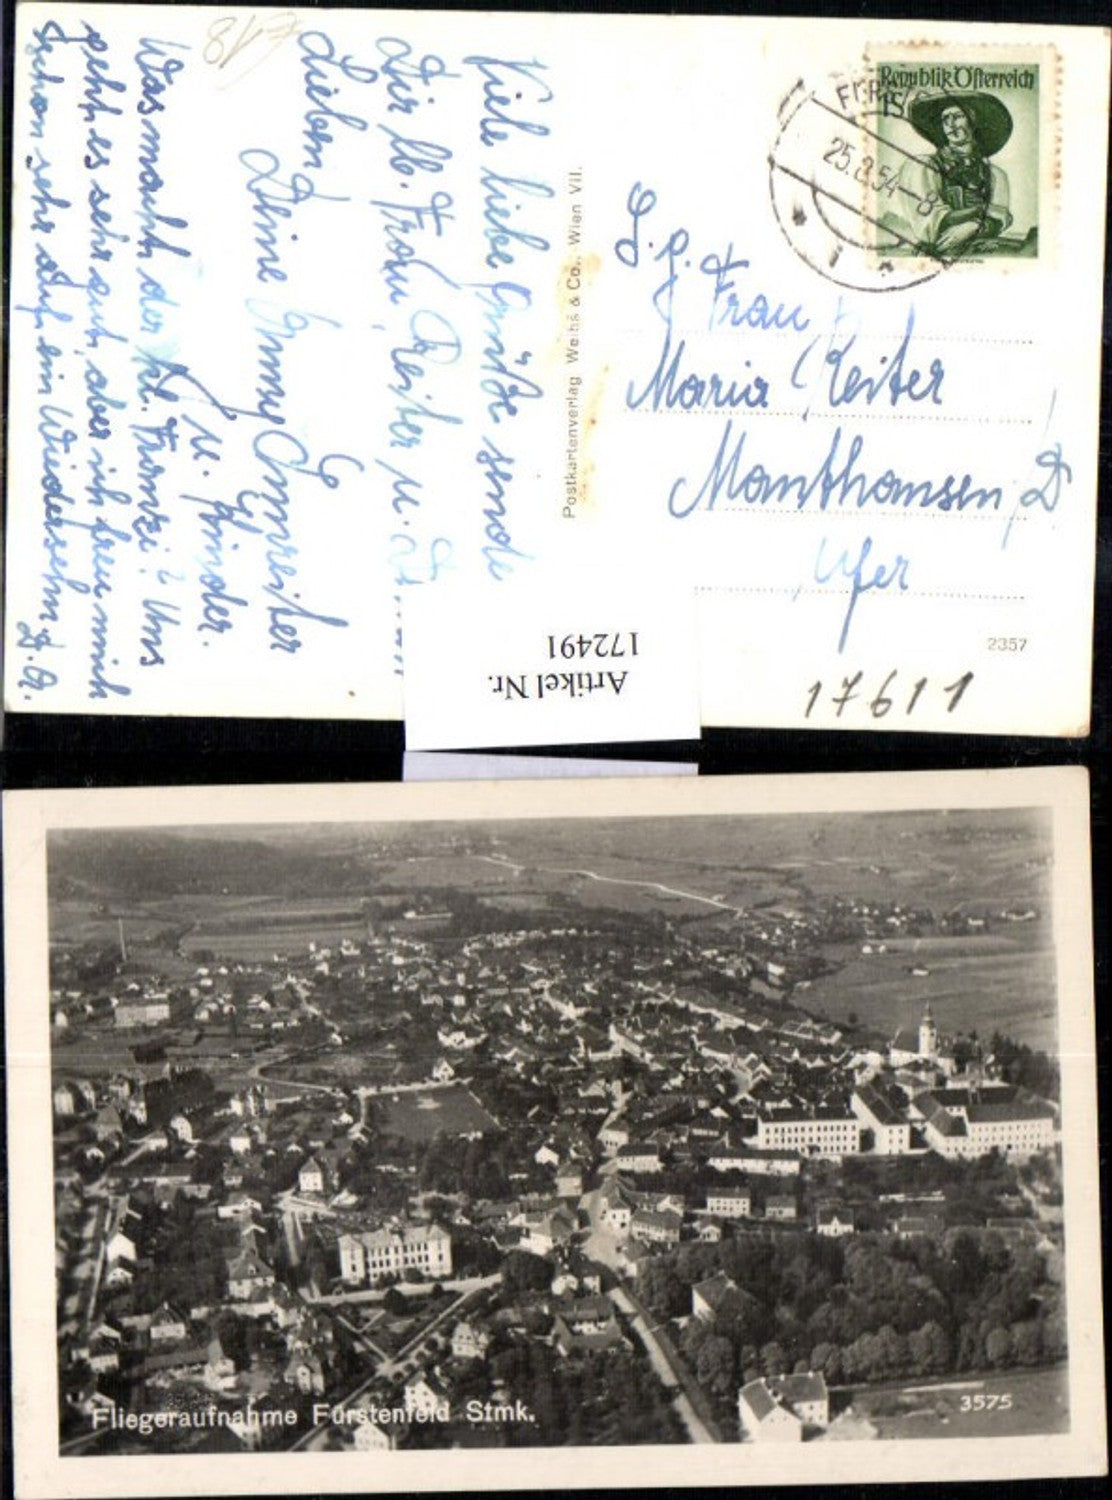 Viele liebe Grüße sende
Dir lb. Frau Reiter u.
Lieben
Deine Emmy
u. Kinder.
Was macht der kl. Franzi? Uns
geht es sehr gut, aber ich freu mich
schon sehr auf ein Wiedersehn.
D.O.
Postkartenverlag Weihs & Co., Wien VII.
Republik Österreich
1S
25.8.54-8
S. g. Frau
Maria Reiter
Mauthausen/D
Ufer
2357
17611
Artikel Nr.
172491
Fliegeraufnahme Fürstenfeld Stmk.
3575